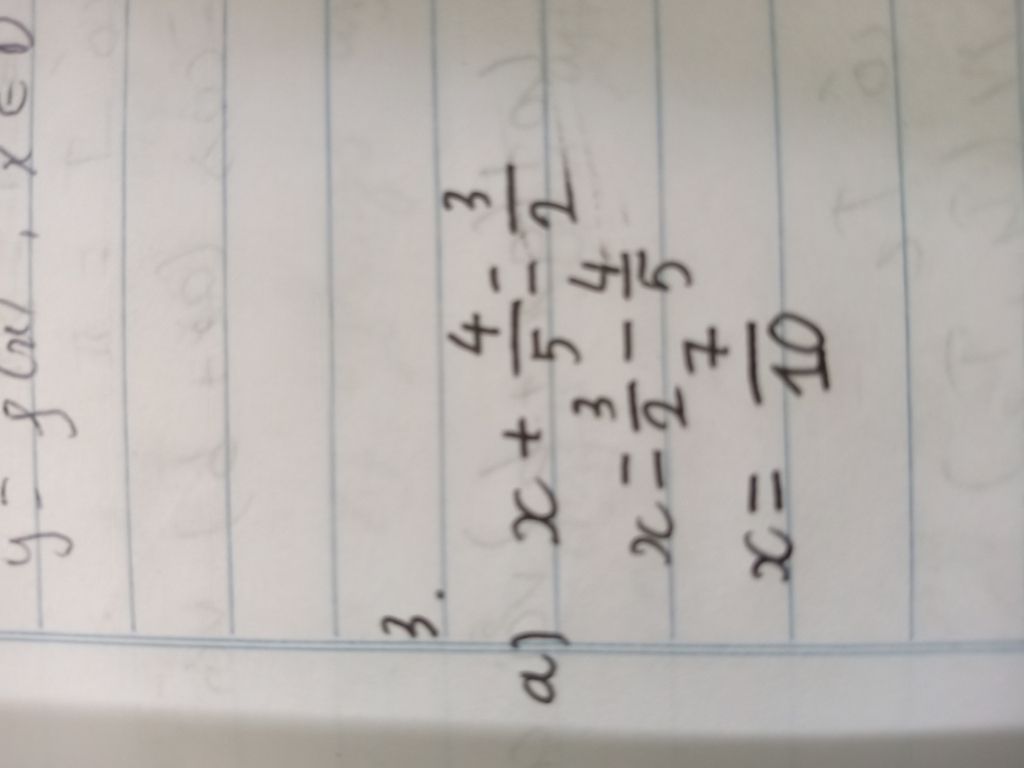 y = f(x), x ∈ D
3.
a) x + 4/5 = 3/2
x = 3/2 - 4/5
x = 7/10